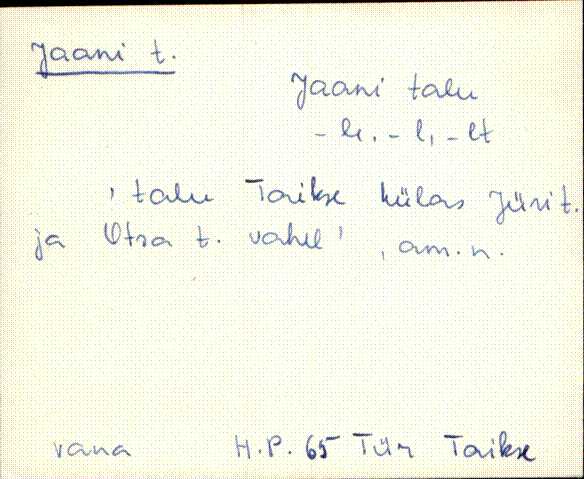 Jaani t.
Jaani talu
-le, -l, -lt
'talu Taikse külas Jüri t.
ja Otsa t. vahel', am.n.
vana H.P. 65 Tür Taikse